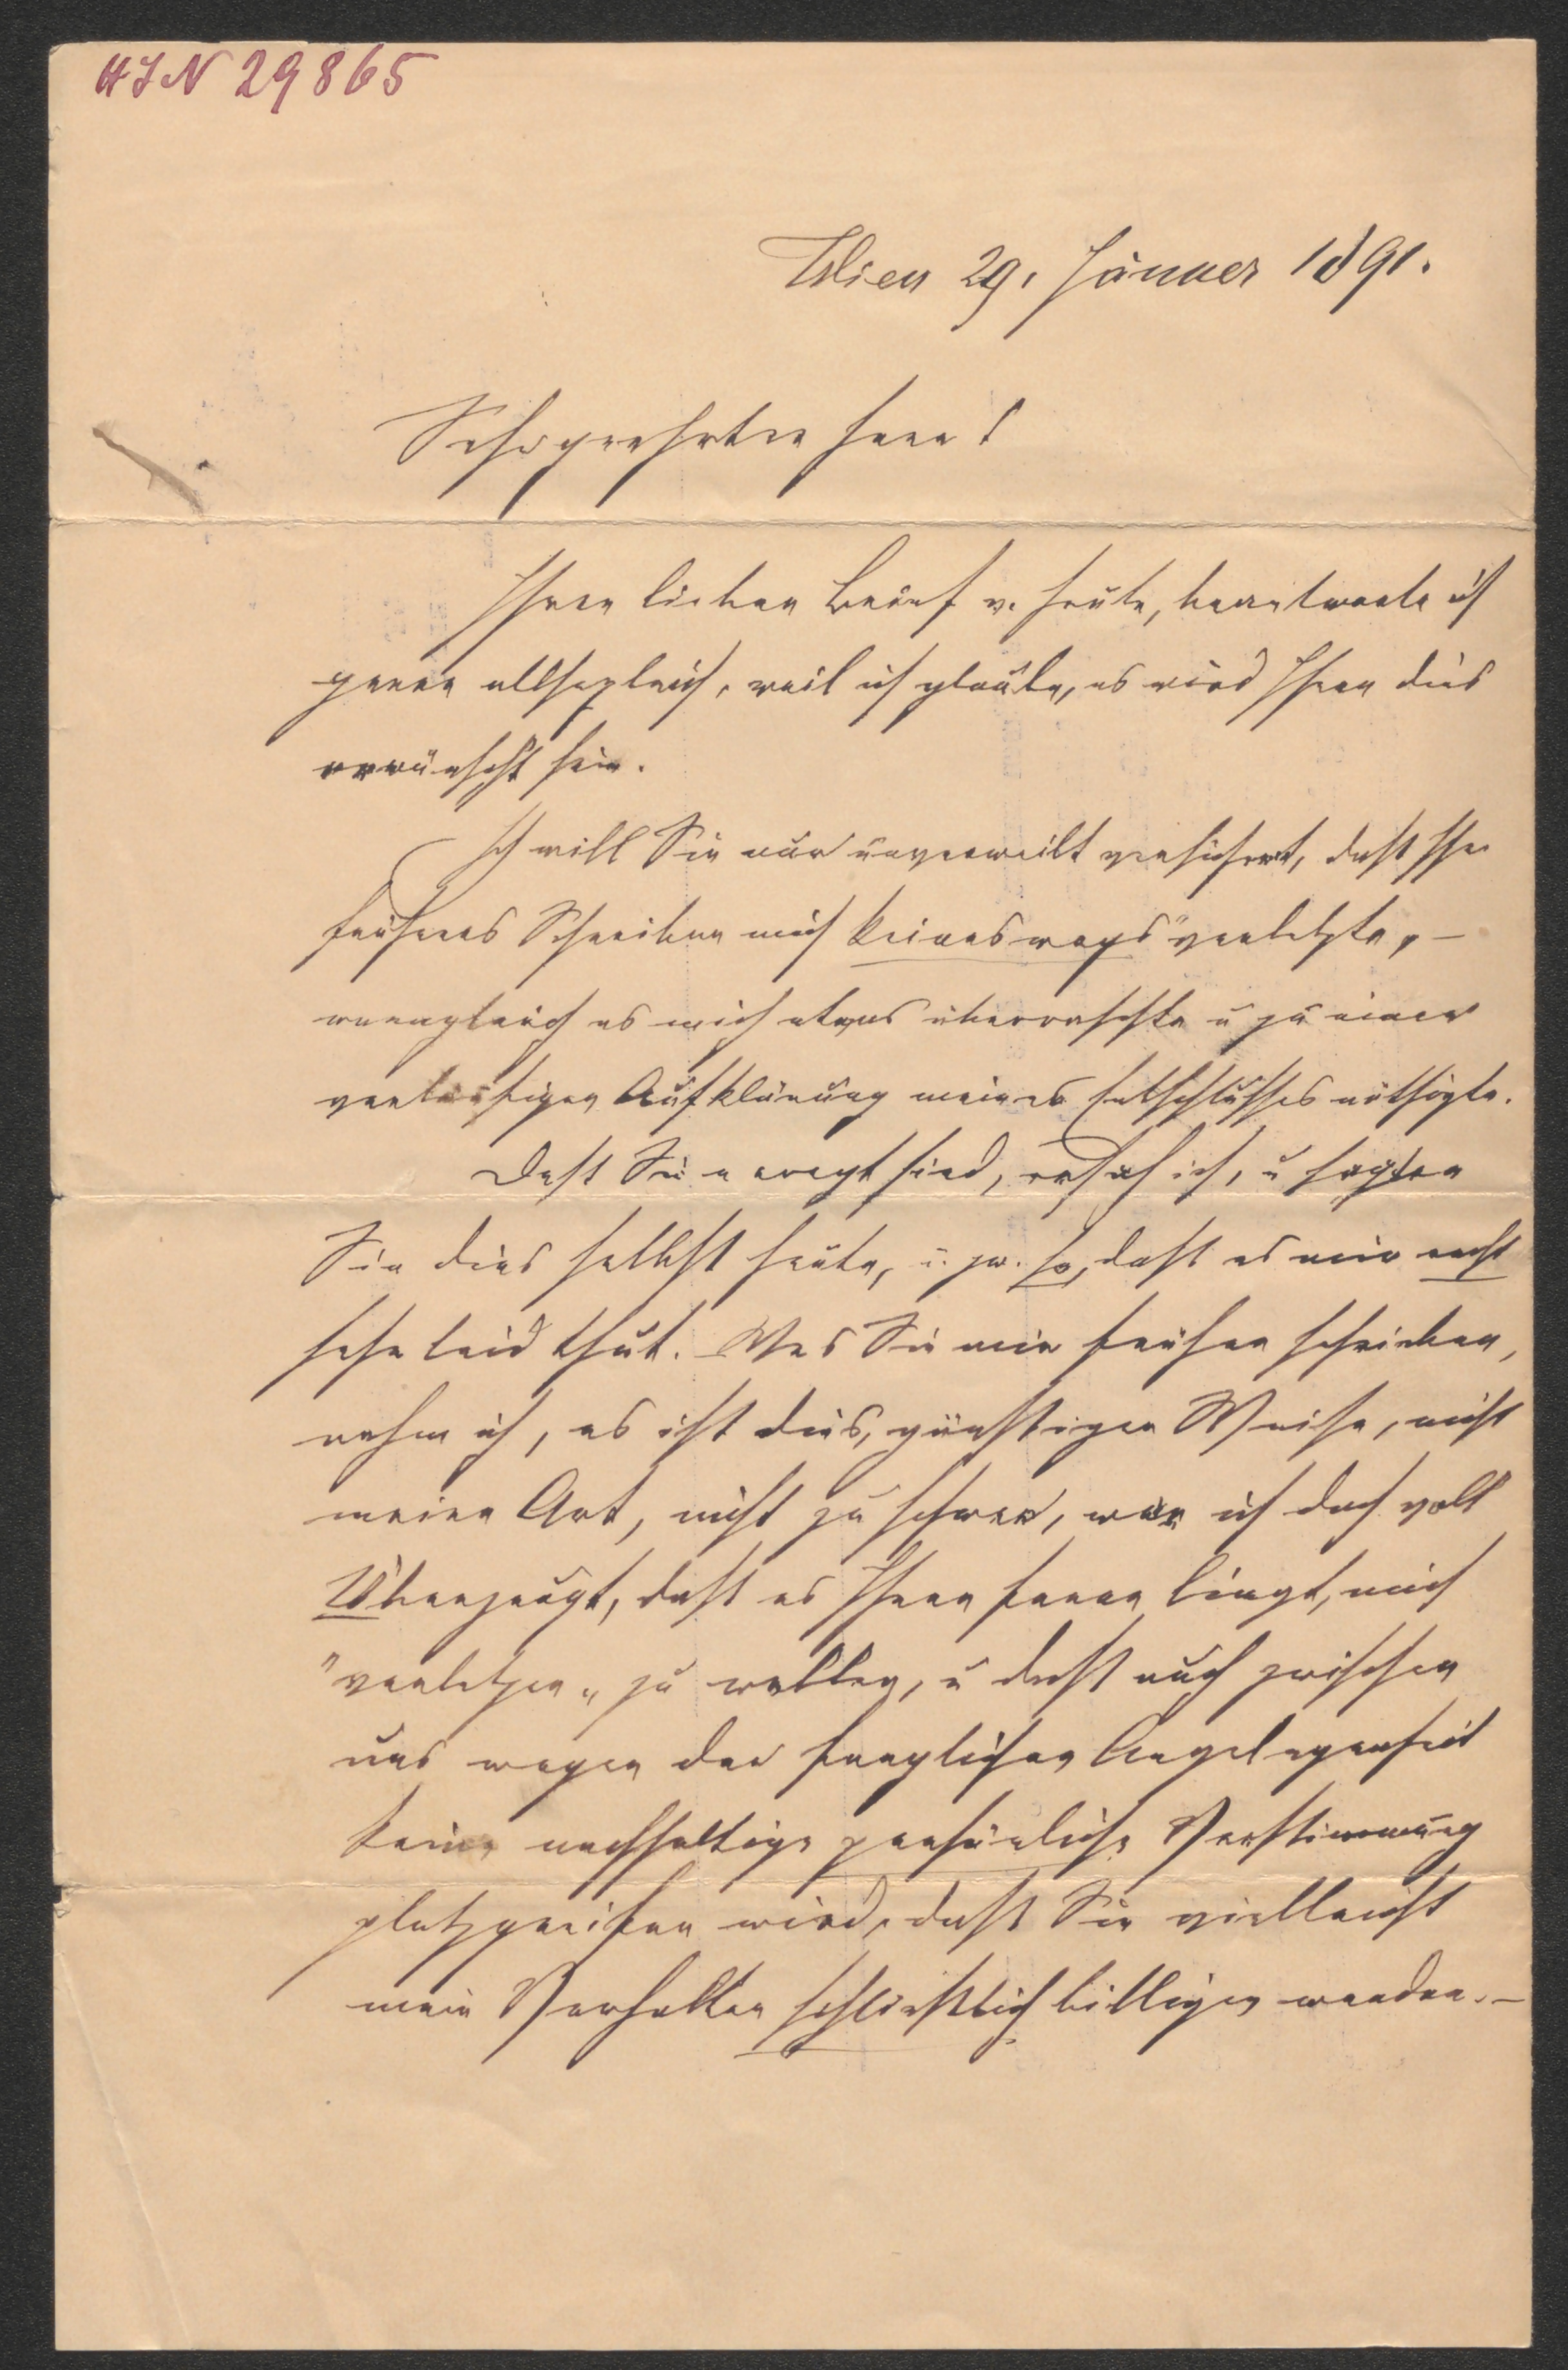 HIN 29865
Wien 29. Jänner 1891.
Sehr geehrter Herr!
Ihren lieben Brief v. heute, beantworte ich
gerne allsogleich, weil ich glaube, es wird Ihnen dies
erwünscht sein.
Ich will Sie nur unverweilt versichert, daß Ihr
früheres Schreiben mich keineswegs "verletzte" –
wenngleich es mich etwas überraschte u zu einer
vorläufigen Aufklärung meines Entschlusses nöthigte.
Daß Sie erregt sind, ersah ich, u sagten
Sie dies selbst heute, u. zw. so, daß es mir recht
sehr leid thut. Was Sie mir früher schrieben,
nehm ich, es ist dies, günstiger Weise, nicht
meine Art, nicht zu schwer, war ich doch voll
Überzeugt, daß es Ihnen ferne liegt, mich
"verletzen" zu wollen, u daß auch zwischen
uns wegen der fraglichen Angelegenheit
keine nachhaltige persönliche Verstimmung
platzgreifen wird, daß Sie vielleicht
mein Verhalten schließlich billigen werden. –